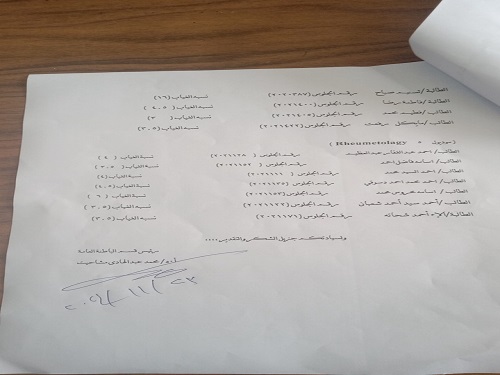 الطالبة / رقم الجلوس (٢٠٢٠٣٨٧) نسبه الغياب (١٦)
الطالبة / فاطمة رضا رقم الجلوس (٢٠٢١٤٠٠) نسبه الغياب ( ٤.٥ )
الطالب / محمد رقم الجلوس (٢٠٢١٤٠٥) نسبه الغياب ( ٣ )
الطالب / مايكل رفعت رقم الجلوس (٢٠٢١٤٢٣) نسبه الغياب (٣.٥)
( موديول Rheumetology )
الطالب / احمد عبد الغفار عبد العظيم رقم الجلوس (٢٠٢١١٢٨) نسبة الغياب ( ٩ )
الطالب / اسامه فاضل احمد رقم الجلوس (٢٠٢١١٥٢) نسبه الغياب ( ٣.٥ )
الطالب / احمد السيد محمد رقم الجلوس (٢٠٢١١١١) نسبه الغياب (٤)
الطالب / احمد محمد احمد دسوقي رقم الجلوس (٢٠٢١١٣٥) نسبه الغياب (٤.٥)
الطالب / اسامه محمد رقم الجلوس (٢٠٢١١٥٣) نسبه الغياب ( ٦ )
الطالب / أحمد سيد أحمد شعبان رقم الجلوس (٢٠٢١١٢٢) نسبه الغياب ( ٣.٥ )
الطالبة / آلاء أحمد شحاته رقم الجلوس (٢٠٢١١٧٦) نسبه الغياب (٣.٥)
جزيل الشكر والتقدير ....
رئيس قسم الباطنة العامة
أ.د/ محمد عبد الهادى مشاحيت
٢٠٢٤/١١/٢٣